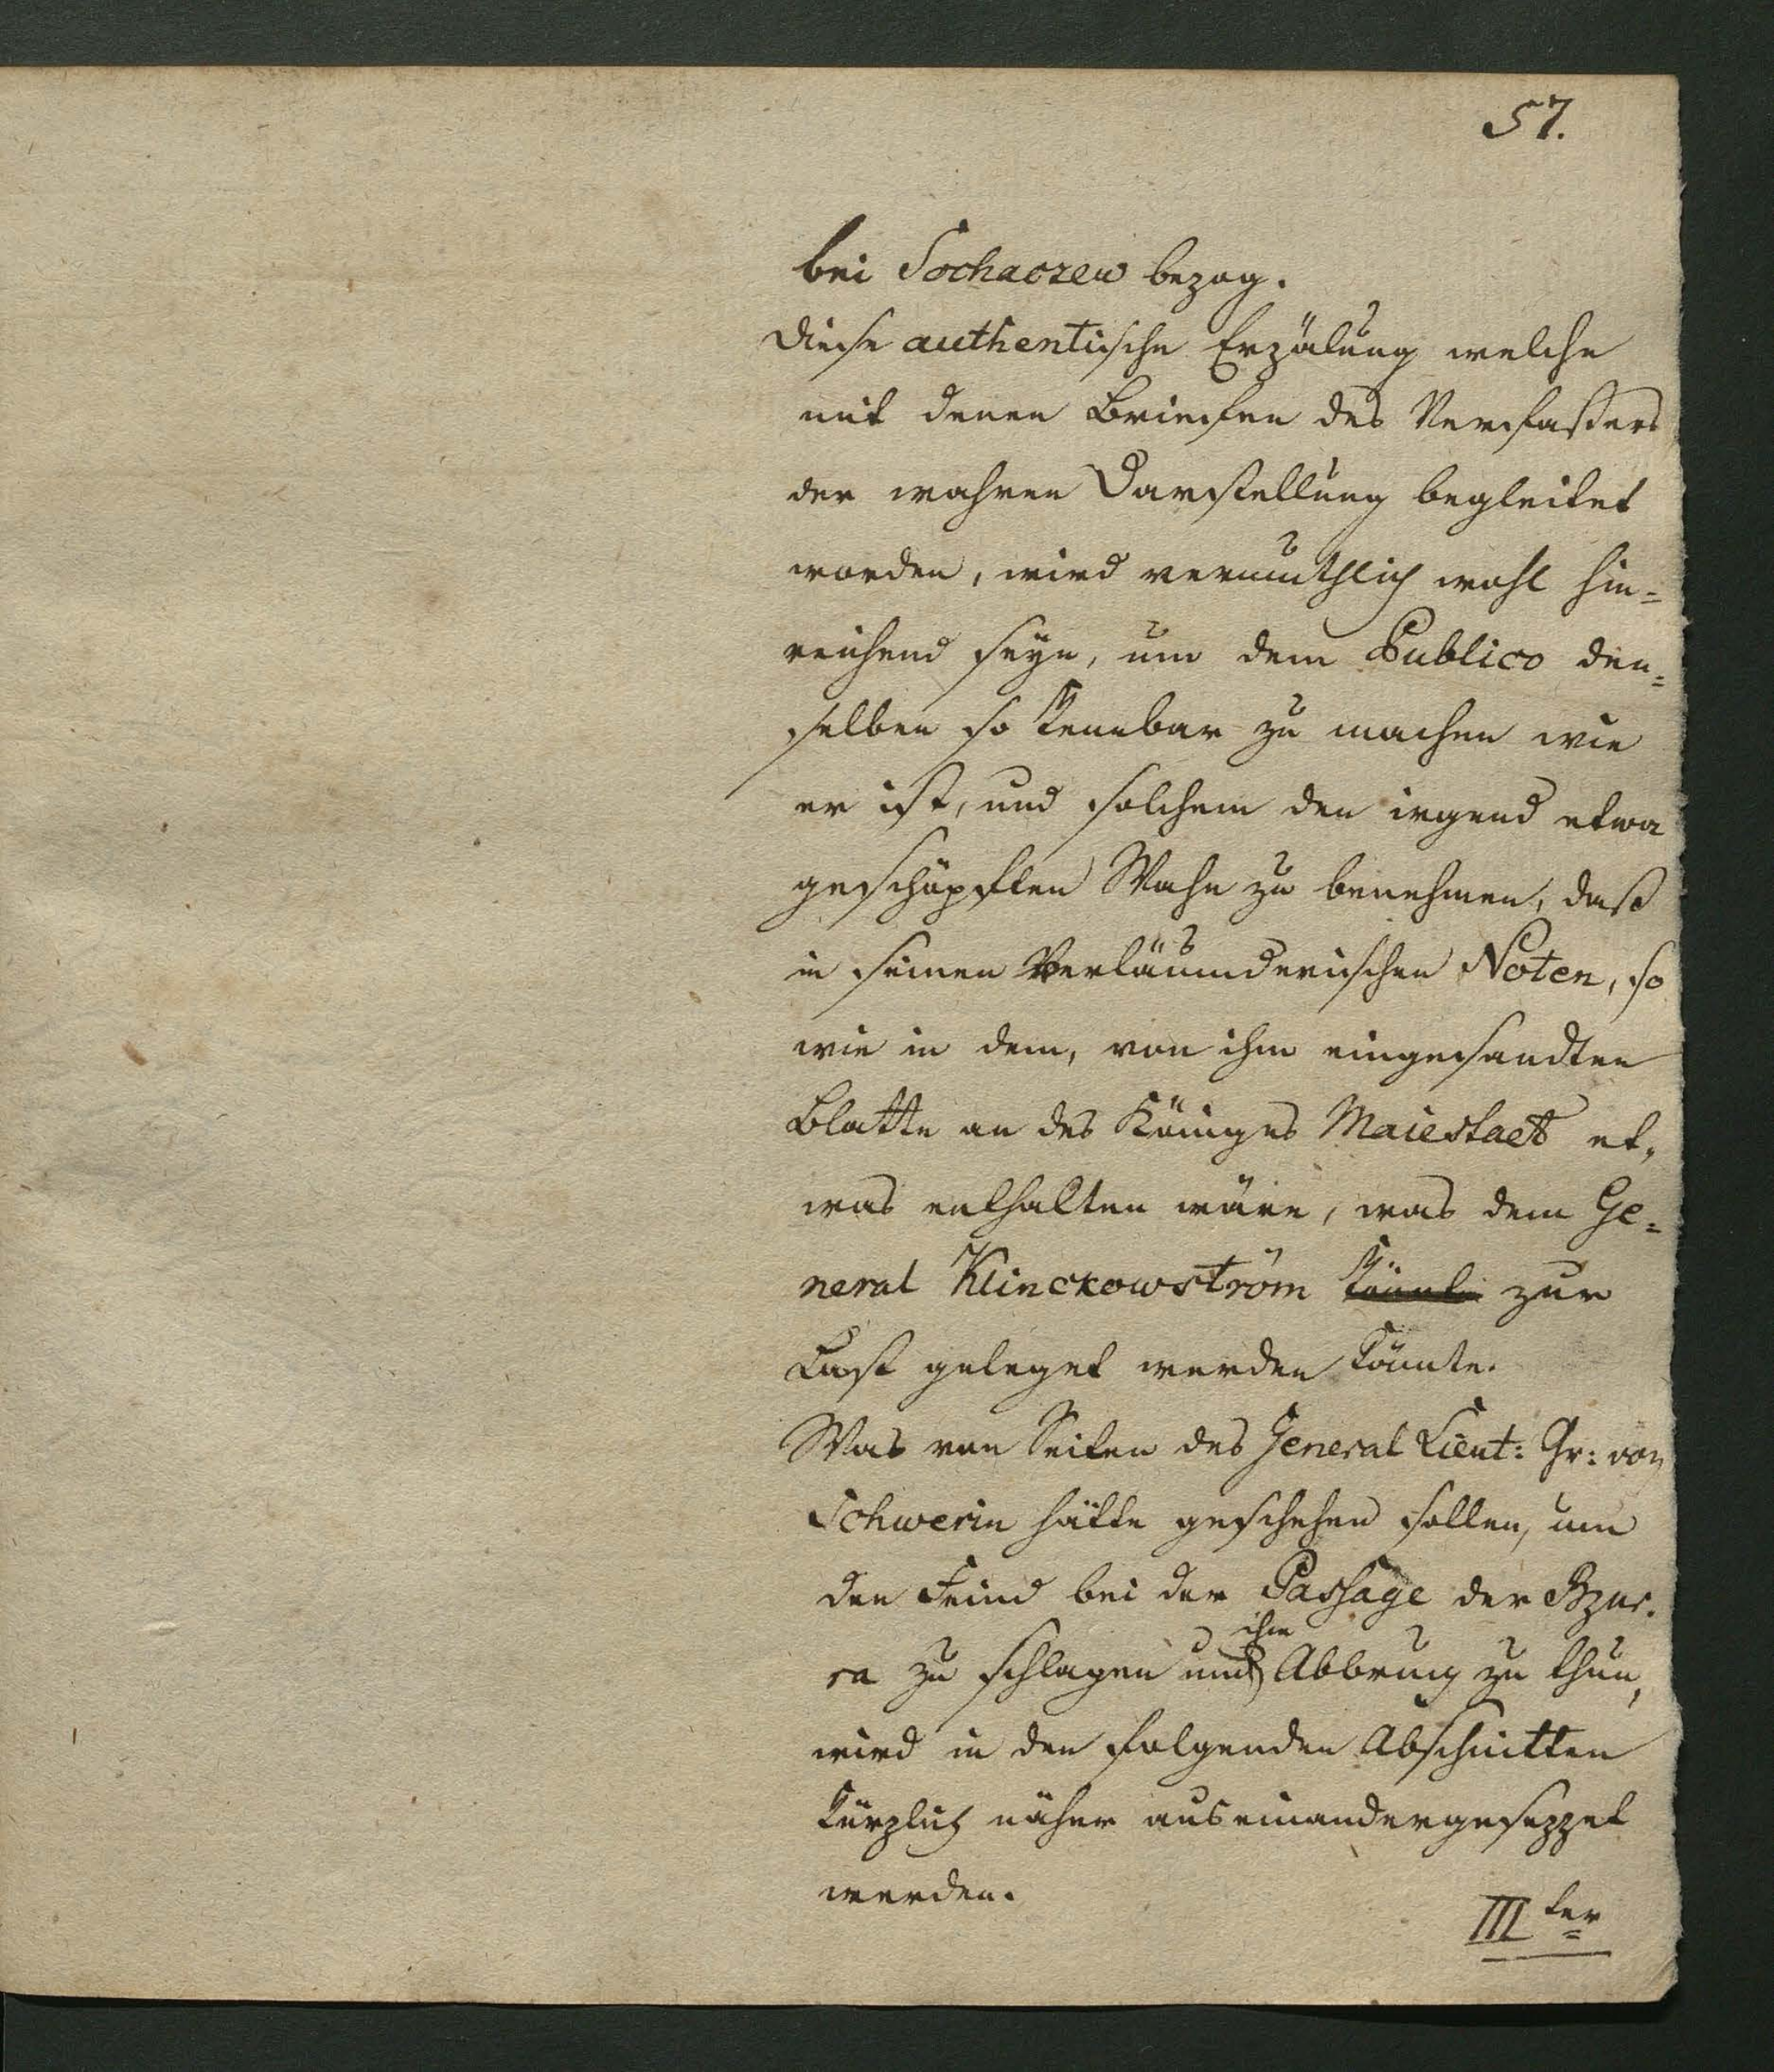 57.
bei Sochaczew bezog.
Diese authentische Erzälung welche
mit denen Briefen des Verfaßers
der wahren Darstellung begleitet
worden, wird vermuthlich wohl hin=
reichend seyn, um dem Publico den=
selben so kennbar zu machen wie
er ist, und solchem den irgend etwa
geschöpften Wahn zu benehmen, daß
in seinen Verläumderischen Noten, so
wie in dem, von ihm eingesandten
Blatte an des Königes Maiestaet et=
was enthalten wäre, was dem Ge=
neral Klinckowström könnte zur
Last geleget werden könnte.
Was von Seiten des General Lieut: Gr: von
Schwerin hätte geschehen sollen, um
den Feind bei der Passage der Bzur=
ra zu schlagen und ihm Abbruch zu thun,
wird in den folgenden Abschnitten
kürzlich näher auseinandergesezzet
werden.
III ter